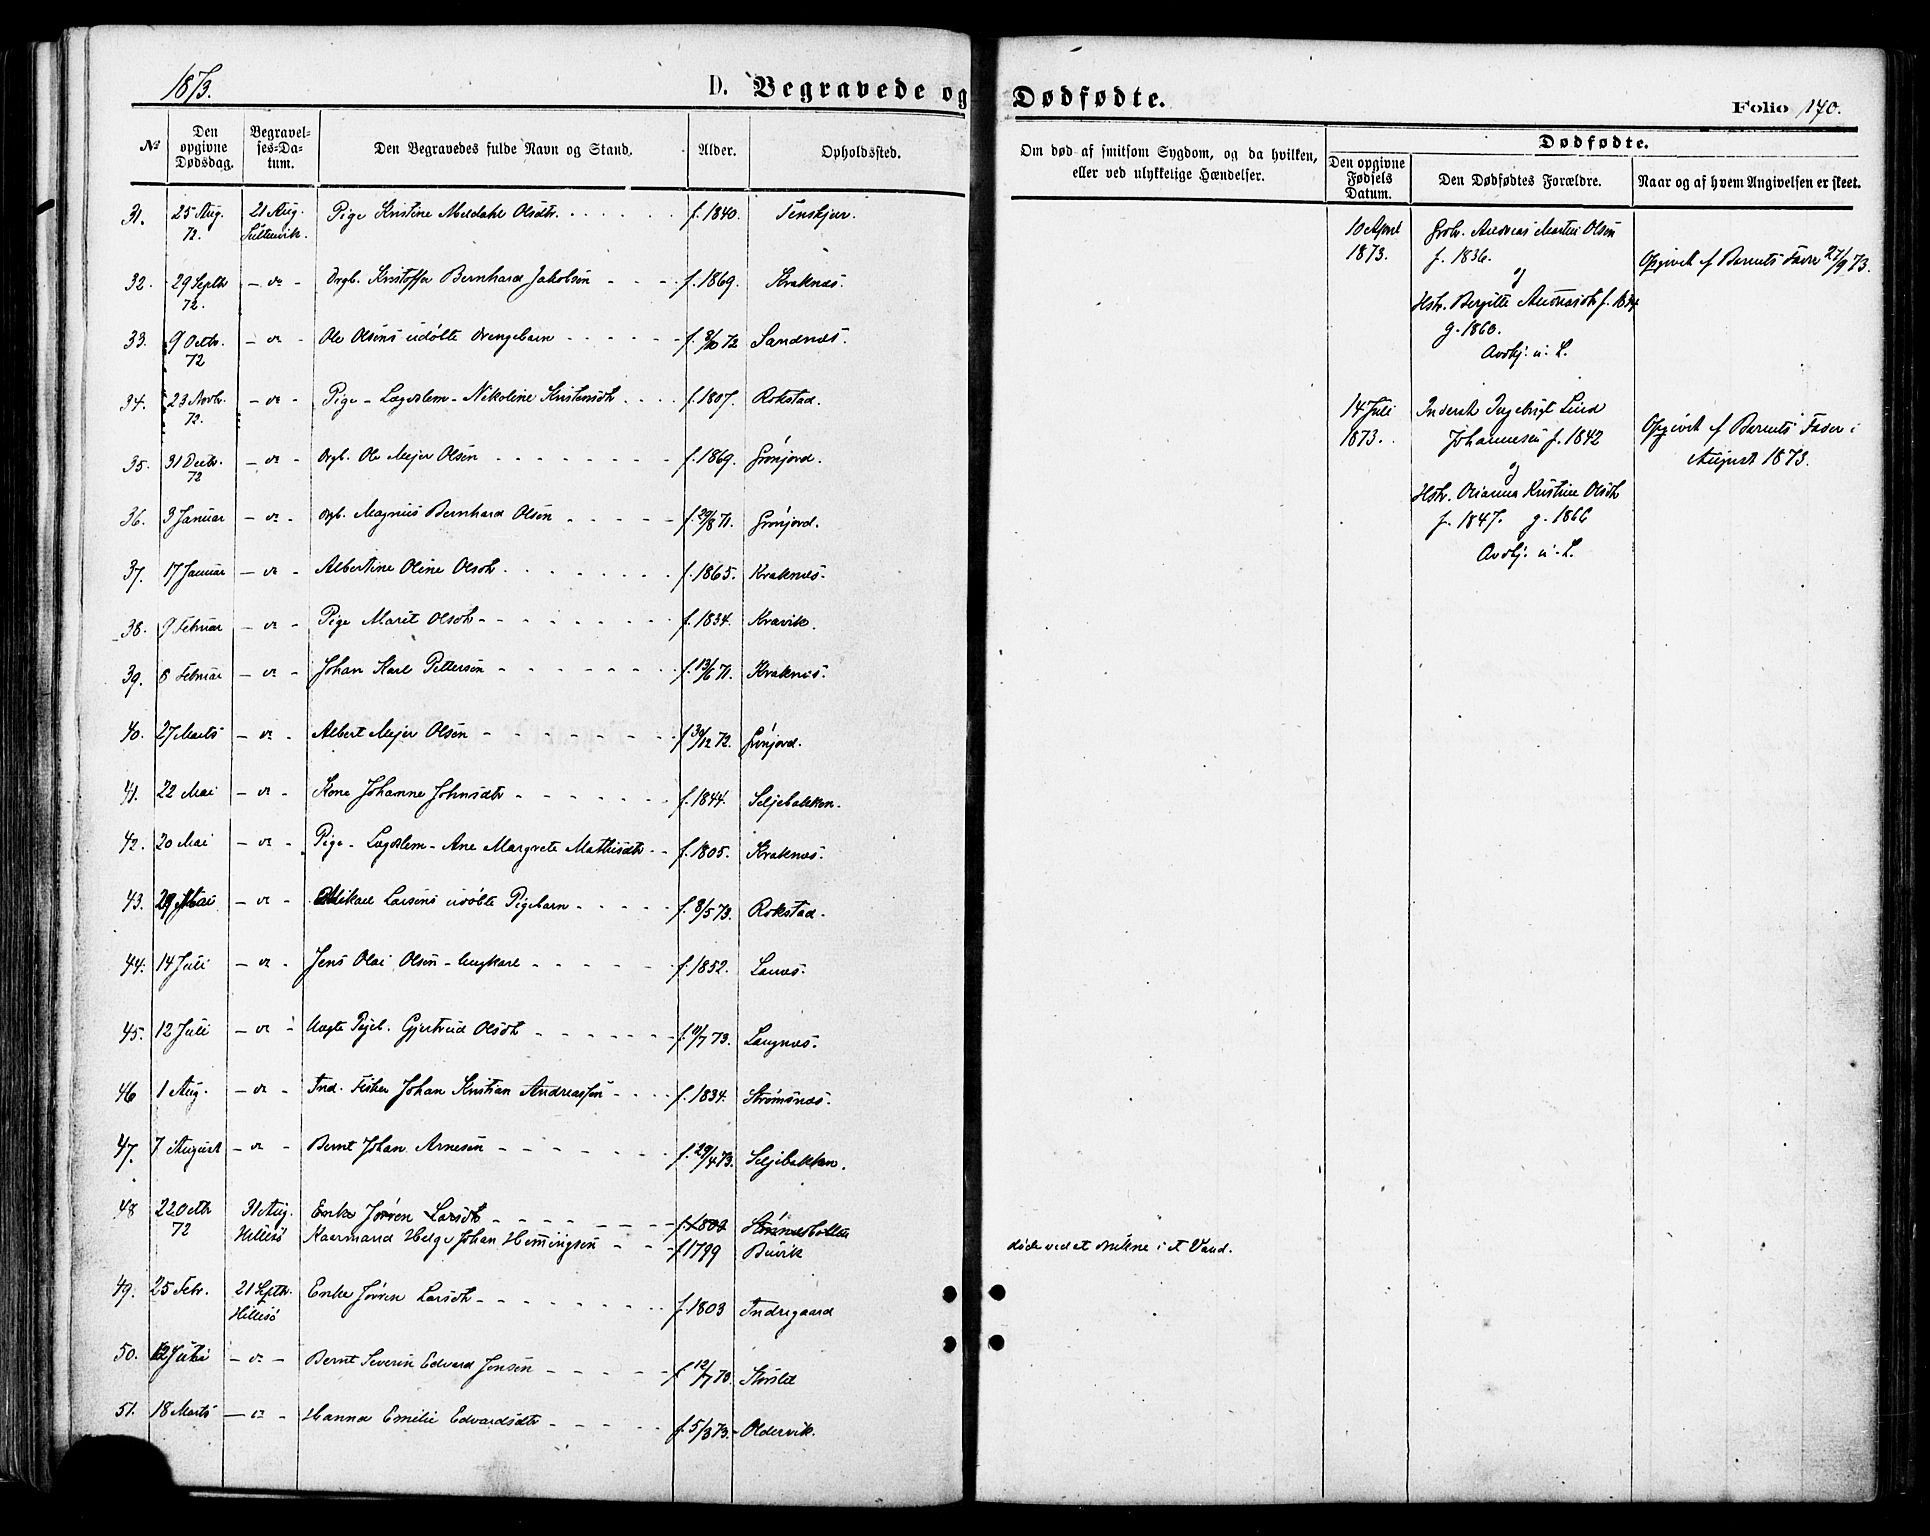 1873.
D. Begravede og Dødfødte.
Folio 170.
№
Den opgivne Dødsdag.
Begravelses-Datum.
Den Begravedes fulde Navn og Stand.
Alder.
Opholdssted.
Om død af smitsom Sygdom, og da hvilken, eller ved ulykkelige Hændelser.
Dødfødte.
Den opgivne Fødsels Datum.
Den Dødfødtes Forældre.
Naar og af hvem Angivelsen er skeet.
31. 25 Aug. 72. 21 Aug. Pige Kristine Meldahl Olsdtr. f. 1840. Tenskjær.
32. 29 Septbr 72. - do - Drgb. Kristoffer Bernhard Jakobsen f. 1869. Kraknæs.
33. 9 Octbr. 72 - do - Ole Olsens udøbte Drengebarn f. 9/10 72 Sandnæs.
34. 23 Novbr. 72. - do - Pige - Lægdslem - Nikoline Kristensdtr f. 1807. Rokstad.
35. 31 Decbr. 72 - do - Drgb. Ole Mejer Olsen f. 1869. Grønjord.
36. 3 Januar - do - Drgb. Magnus Bernhard Olsen f. 29/8 71. Grønjord.
37. 17 Januar - do - Albertine Oline Olsdtr. f. 1865. Kraknæs.
38. 9 Februar - do - Pige Marit Olsdtr f. 1834. Kravik.
39. 8 Februar - do - Johan Karl Pettersen f. 13/6 71. Kraknæs.
40. 27 Marts - do - Albert Mejer Olsen f 30/12 72. Grønjord.
41. 22 Mai - do - Kone Johanne Johnsdtr f. 1844. Seljebakken.
42. 20 Mai - do - Pige - Lægdslem - Ane Margrete Mathisdtr f. 1805. Kraknæs.
43. 29 Mai - do - Mikael Larsens udøbte Pigebarn f. 8/5 73. Rokstad.
44. 14 Juli - do - Jens Olai Olsen - Ungkarl f. 1852. Lanes.
45. 12 Juli - do - Uægte Pigeb. Gjertrud Olsdtr f. 11/7 73. Langnæs.
46 1 Aug. - do - Ind. Fisker Johan Kristian Andreassen f. 1834. Strømsnæs.
47. 7 August - do - Bernt Johan Arnesen f. 29/4 73. Seljebakken.
48 22 Octbr 72 31 Aug. Hillesø Enke Jørren Larsdtr f. 1802
Kaarmand Helge Johan Hemmingsen f 1799 Buvik
døde ved at drukne i et Vand.
49. 25 Febr. 21 Septbr. Hillesø Enke Jørren Larsdtr f. 1803 Indregaard
50. 12 Juli - do - Bernt Severin Edvard Jensen f 12/7 73. Storslet
51. 18 Marts - do - Hanna Emilie Edvardsdtr f. 5/3 73. Oldervik.
10 April 1873.
Grbr. Andreas Martin Olsen
f. 1836.
og
Hstr. Bergitte Andreasdtr f. 1834
g. 1860.
Avskj. u. L.
Opgivet af Barnets Fader 27/9 73.
14 Juli 1873.
Inderst Ingebrigt Lind
Johannesen f. 1842
og
Hstr. Oleanna Kristine Olsdtr
f. 1847. g. 1866
Avskj. u. L.
Opgivet af Barnets Fader i
August 1873.